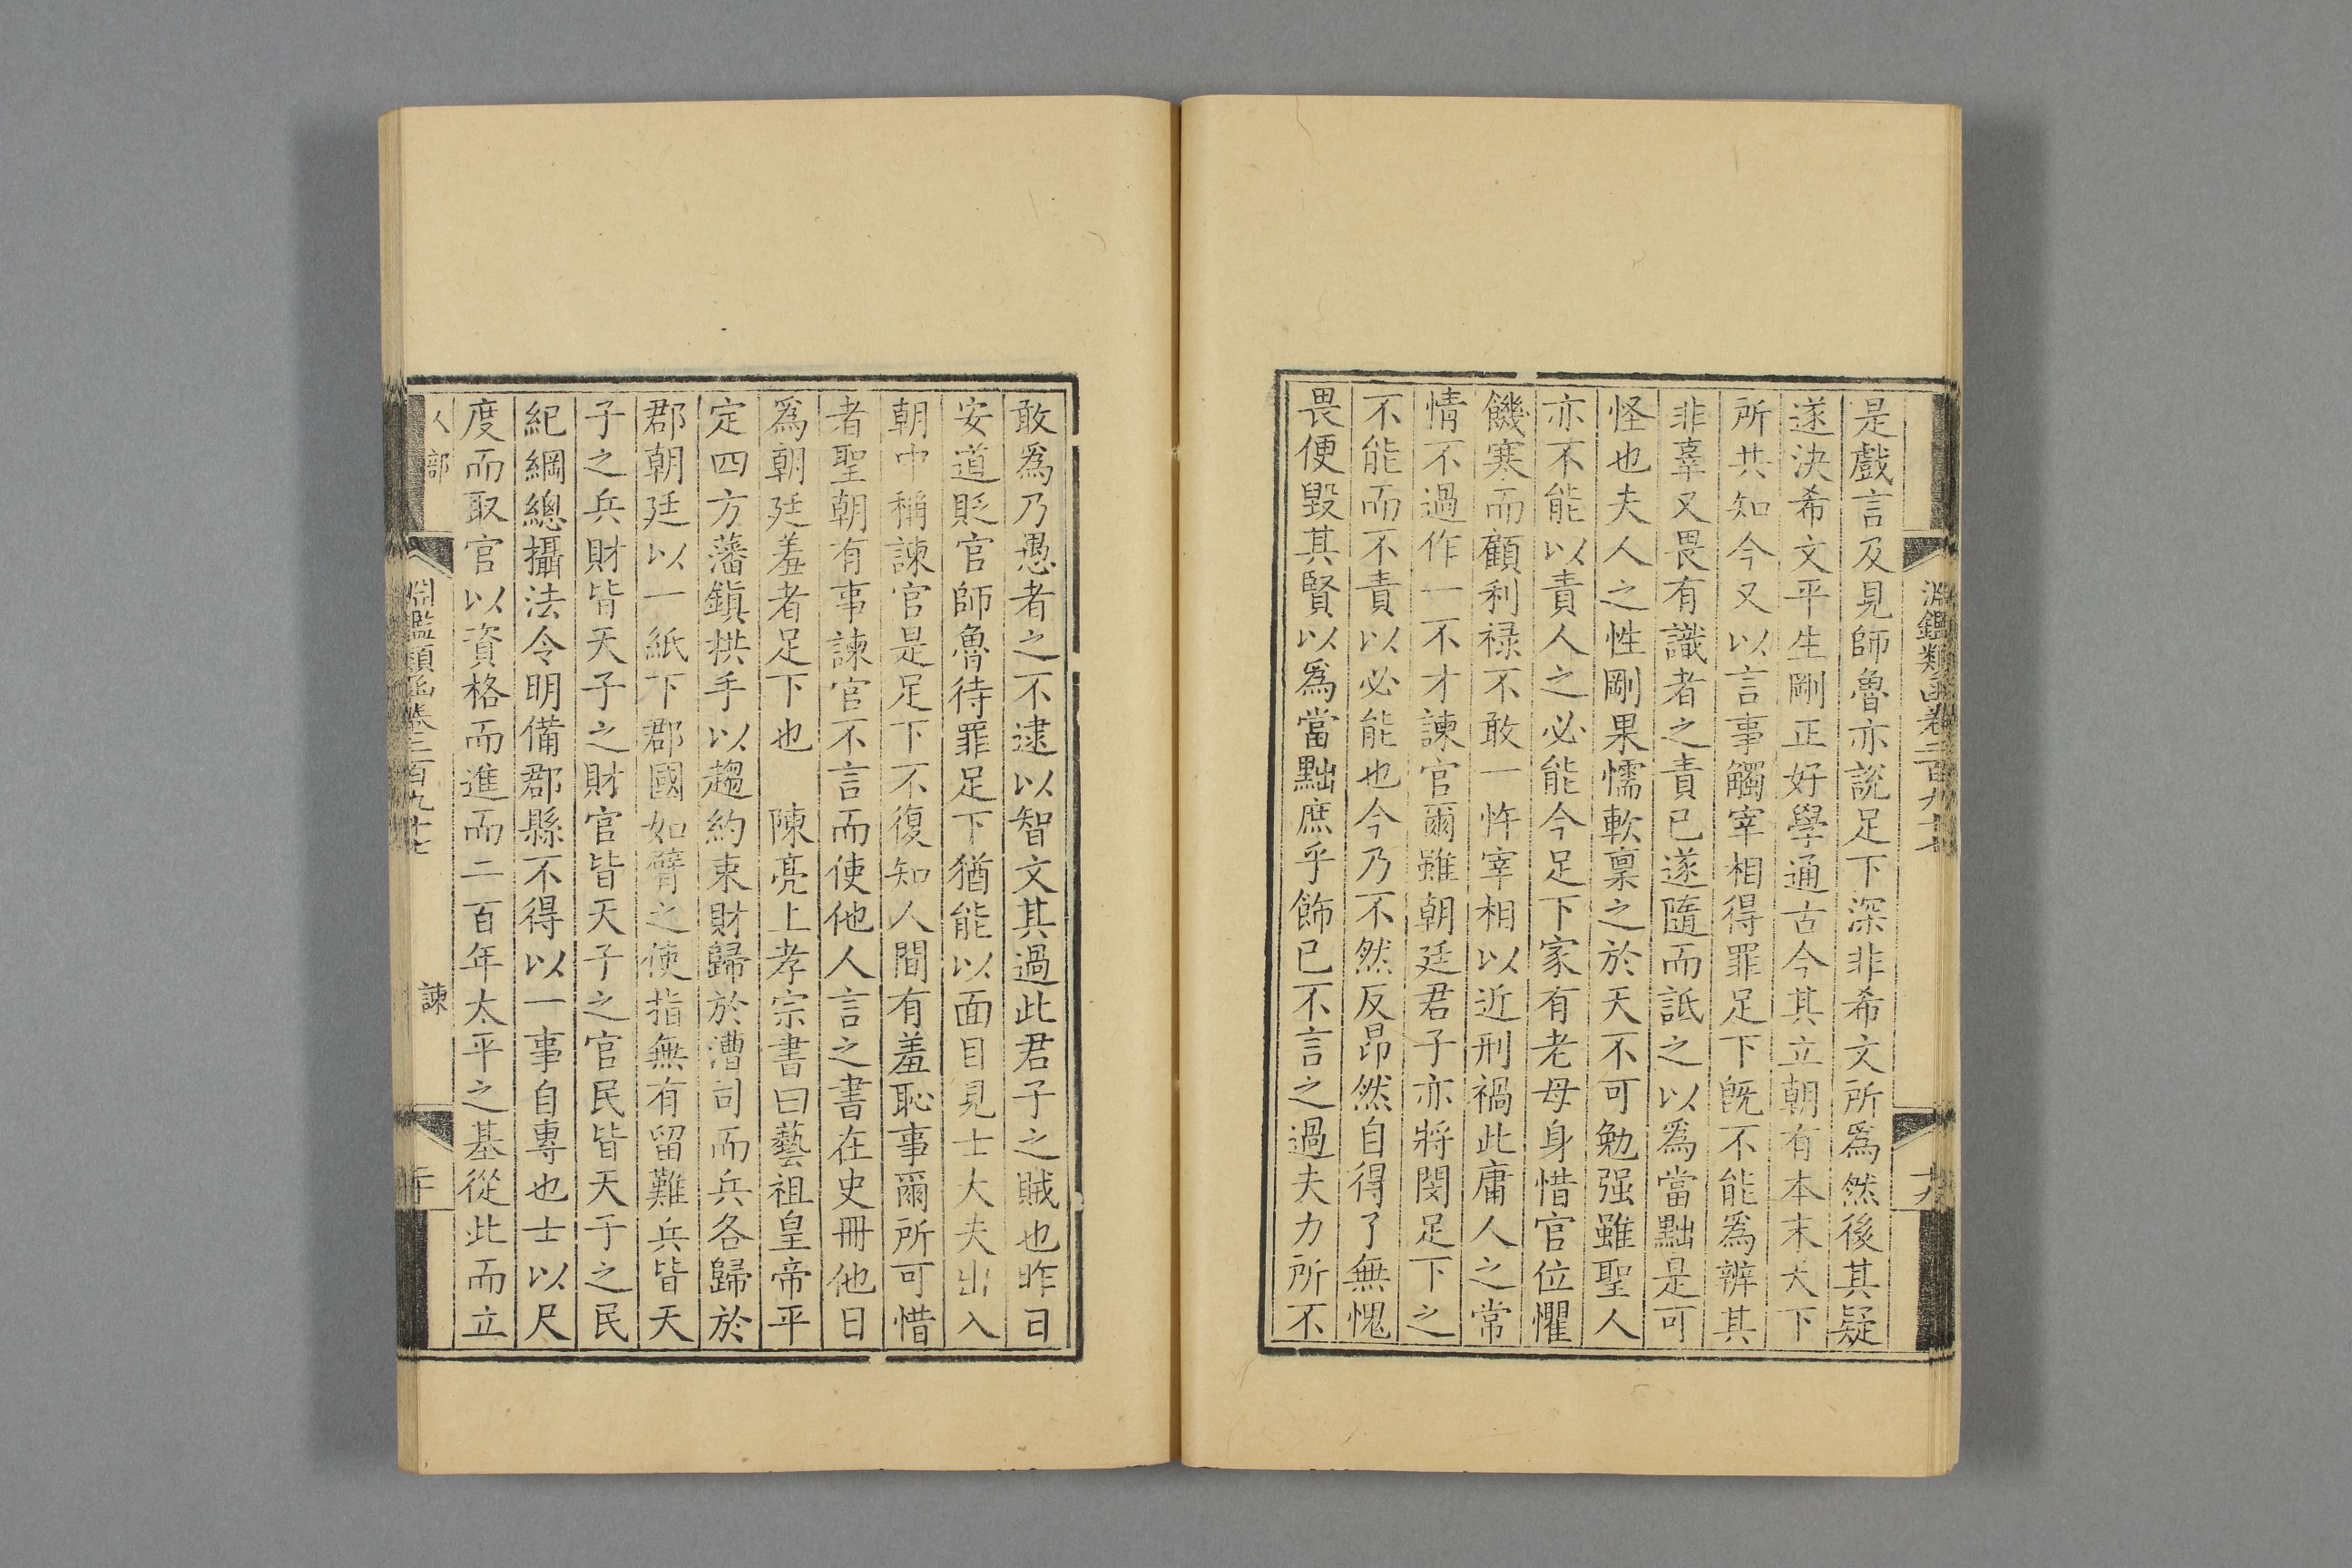 淵鑑類函卷二百九十七
十九
是戲言及見師魯亦說足下深非希文所爲然後其疑
遂決希文平生剛正好學通古今其立朝有本末天下
所共知今又以言事觸宰相得罪足下旣不能爲辨其
非辜又畏有識者之責已遂隨而詆之以爲當黜是可
怪也夫人之性剛果懦軟稟之於天不可勉强雖聖人
亦不能以責人之必能今足下家有老母身惜官位懼
饑寒而顧利祿不敢一忤宰相以近刑禍此庸人之常
情不過作一不才諫官爾雖朝廷君子亦將閔足下之
不能而不責以必能也今乃不然反昂然自得了無愧
畏便毀其賢以爲當黜庶乎飾已不言之過夫力所不
敢爲乃愚者之不逮以智文其過此君子之賊也昨日
安道貶官師魯待罪足下猶能以面目見士大夫出入
朝中稱諫官是足下不復知人間有羞恥事爾所可惜
者聖朝有事諫官不言而使他人言之書在史冊他日
爲朝廷羞者足下也　陳亮上孝宗書曰藝祖皇帝平
定四方藩鎭拱手以趨約束財歸於漕司而兵各歸於
郡朝廷以一紙下郡國如臂之使指無有留難兵皆天
子之兵財皆天子之財官皆天子之官民皆天子之民
紀綱總攝法令明備郡縣不得以一事自專也士以尺
度而取官以資格而進而二百年太平之基從此而立
人部
淵鑑類函卷二百九十七
諫
二十